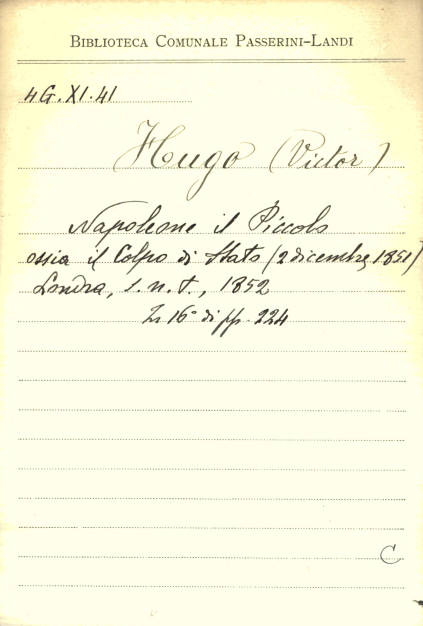 BIBLIOTECA COMUNALE PASSERINI-LANDI
4G.XI.41
Hugo (Victor)
Napoleone il Piccolo
ossia il Colpo di Stato (2 dicembre 1851)
Londra, s.n.t., 1852
In 16° di pp. 224
C